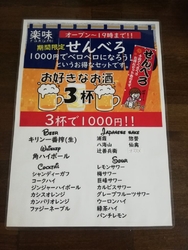 楽味
オープン～19時まで!!
期間限定
せんべろ
1000円でベロベロになろう!
というお得なセットです。
お好きなお酒
3杯
せんべろ
3杯で1000円!!
Beer
キリン一番搾り(生)
Whiskey
角ハイボール
Cocktail
シャンディーガフ
コークハイ
ジンジャーハイボール
カシスオレンジ
カンパリオレンジ
ファジーネーブル
Japanese sake
浦霞 惣誉
八海山 仙禽
辻善兵衛
Sour
レモンサワー
梅サワー
巨峰サワー
カルピスサワー
グレープフルーツサワー
ウーロンハイ
緑茶ハイ
パンチレモン